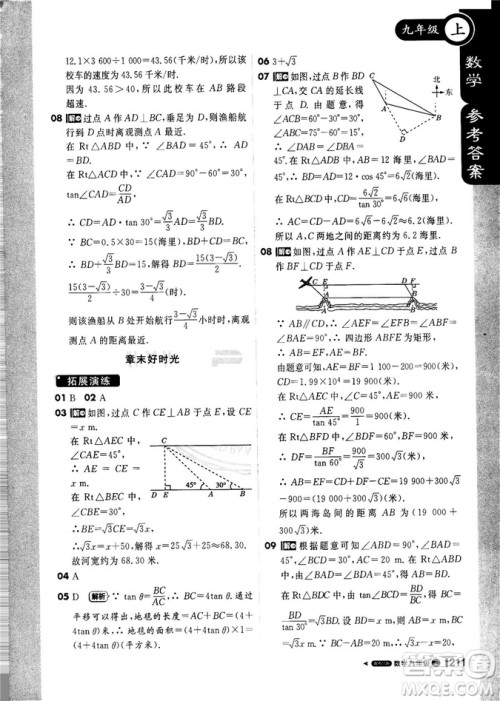 九年级 上
数学 参考答案
12.1×3 600÷1 000=43.56(千米/时),所以该
校车的速度为 43.56 千米/时.
因为 43.56>40,所以此校车在 AB 路段
超速.
08 解 过点 A 作 AD⊥BC,垂足为 D,则渔船航行
到点 D 时离观测点 A 最近.
在 Rt△ABD 中,∵ ∠B=45°,
∴ BD=AD.
在 Rt△ACD 中,∵ ∠CAD=30°,
tan∠CAD=CD/AD,
∴ CD=AD·tan30°=√3/3 AD=√3/3 BD.
∵ BC=0.5×30=15(海里),
∴ BD+√3/3 BD=15,解得 BD=15(3-√3)/2(海里).
15(3-√3)/2÷30=(3-√3)/4(小时).
则该渔船从 B 处开始航行(3-√3)/4小时,离观
测点 A 的距离最近.
章末好时光
拓展演练
01 B 02 A
03 解 如图,过点 C 作 CE⊥DB 于点 E,设
CE=x m.
在 Rt△AEC 中,
∠CAE=45°,
则 AE=CE=
x m.
在 Rt△BCE 中,
∠CBE=30°,
∴ BE=√3CE=√3x m.
∴ √3x=x+50,解得 x=25√3+25≈68.30.
故河宽约为 68.30 m.
C
D E A B
45° 30°
04 A
05 D 解析 ∵ tanθ=BC/AC,∴ BC=4tanθ(米).
∵楼梯宽1米,地毯的长度为AC+BC=(4+
4tanθ)米,∴地毯的面积至少需要1×(4+
4tanθ)=4+4tanθ(平方米).
06 3+√3
07 解 如图,过点 B 作 BD
⊥CA,交 CA 的延长线
于点 D.由题意,得
∠ACB=60°-30°=30°,
∴ ∠ABC=75°-60°=15°.
∴ ∠DAB=∠DBA=45°.
在 Rt△ADB 中,AB=12 海里,∠BAD=45°,
∴ BD=AD=12·cos 45°=6√2(海里).
在 Rt△BCD 中,CD=6√2/tan 30°=6√6(海里).
∴ AC=CD-AD=6√6-6√2≈6.2(海里).
所以 A,C 两地之间的距离约为 6.2 海里.
C
北
东
A
B
D
08 解 如图,过点 A 作 AE⊥CD 于点 E,过点 B
作 BF⊥CD 于点 F.
C E D F
A B
∵ AB∥CD,
∴ ∠AEF=∠EFB=∠ABF=90°.
∴ 四边形 ABFE 为矩形.
∴ AB=EF,AE=BF.
由题意,得 AE=BF=1 100-200=900(米),
CD=1.99×10⁴=19 900(米).
在 Rt△AEC 中,∠C=45°,AE=900 米,
∴ CE=AE/tan 45°=900(米).
在 Rt△BFD 中,∠BDF=60°,BF=900 米,
∴ DF=BF/tan 60°=900/√3=300√3(米).
∴ AB=EF=CD+DF-CE=19 900+300√3
-900=19 000+300√3(米).
所以两海岛间的距离 AB 为(19 000+
300√3)米.
09 解 根据题意可知∠ADB=90°,∠ABD=
30°,∠ACD=45°,AD=4 米.
在 Rt△ADC 中,∵ ∠ACD=45°,∴ CD=AD
=4 米.
在 Rt△ABD 中,∵ ∠ABD=30°,∴ BD=
BD/tan 30°=4√3(米).
∴ BC=BD-CD=(4√3-4)米.
数学九年级 上 1211